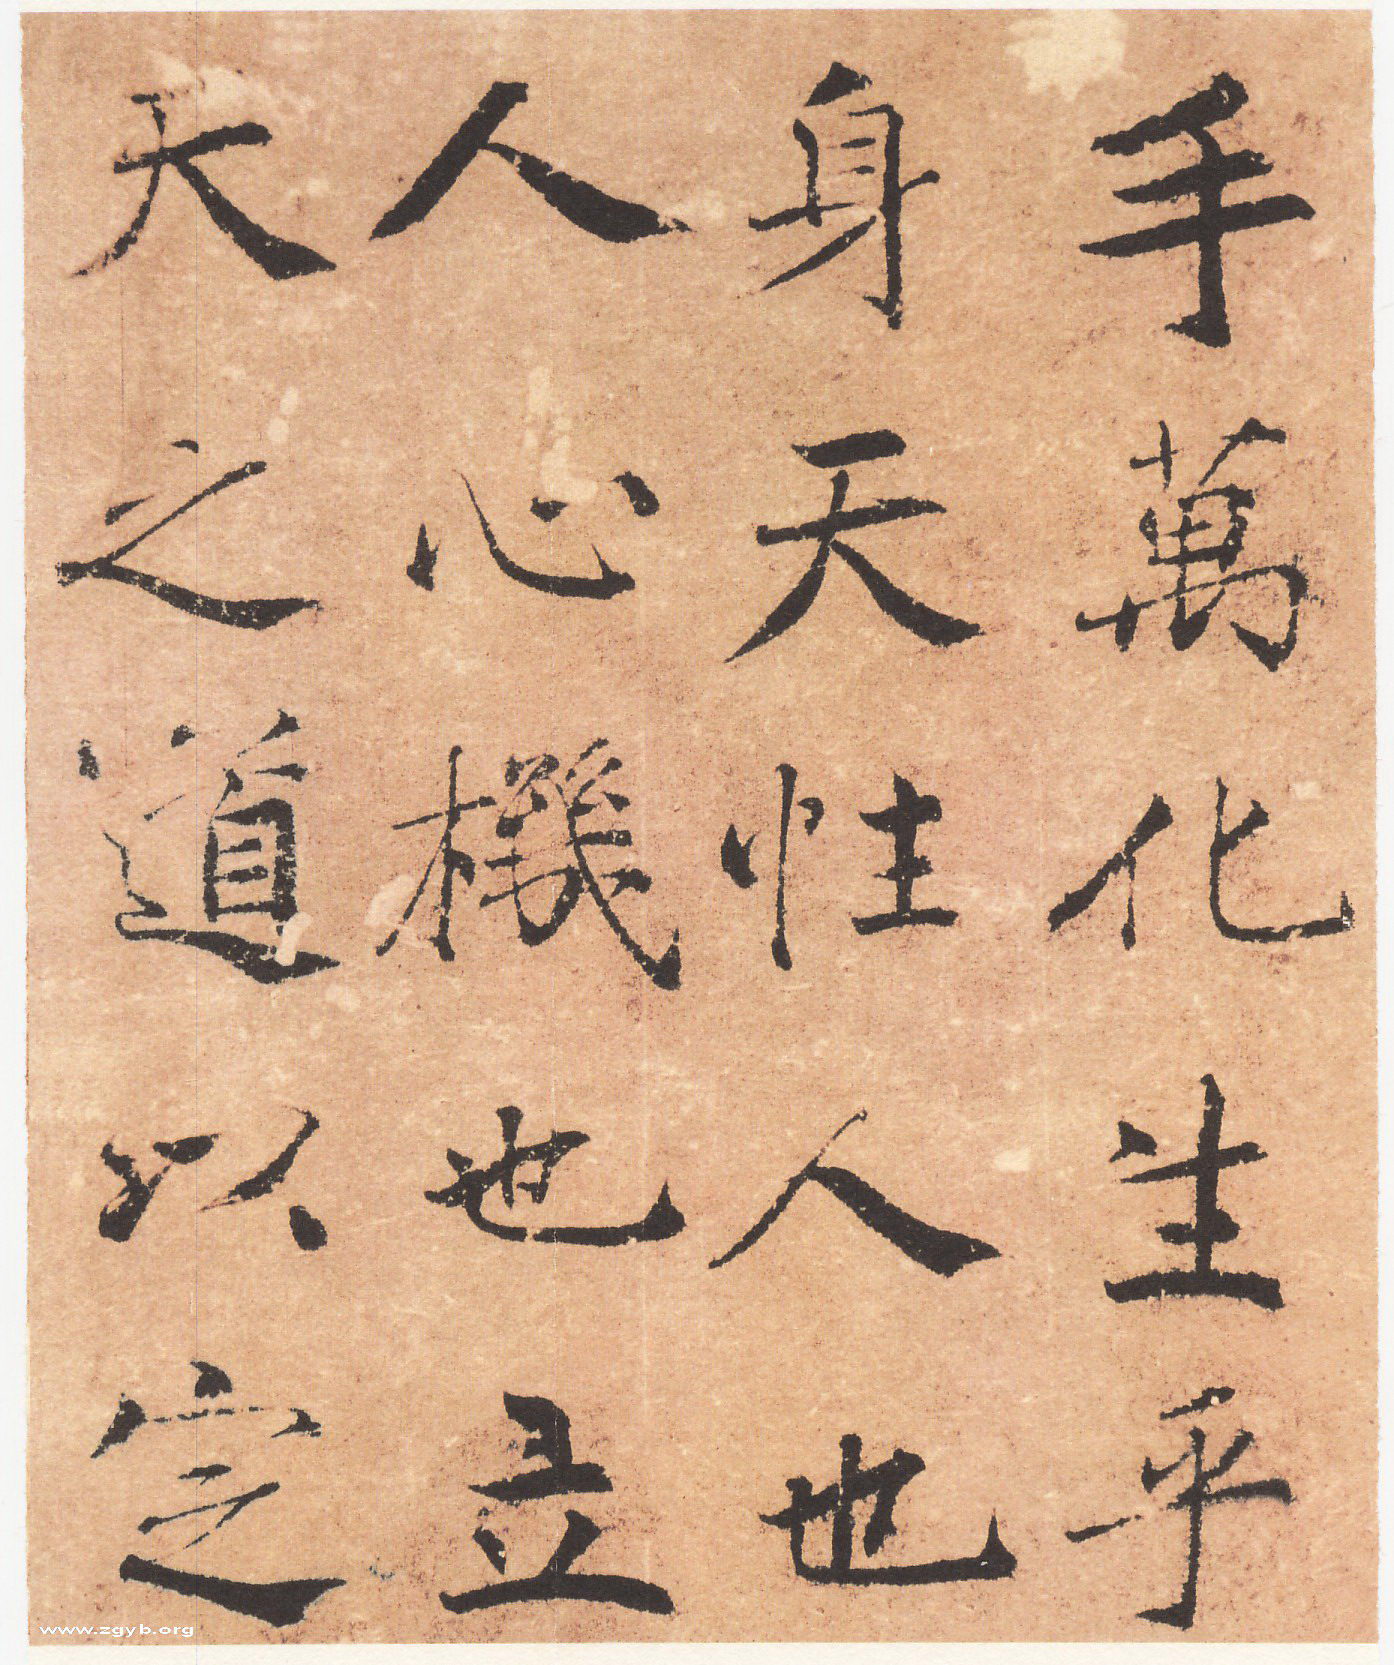 手萬化生乎
身天性人也
人心機也立
天之道以定
www.zgyb.org